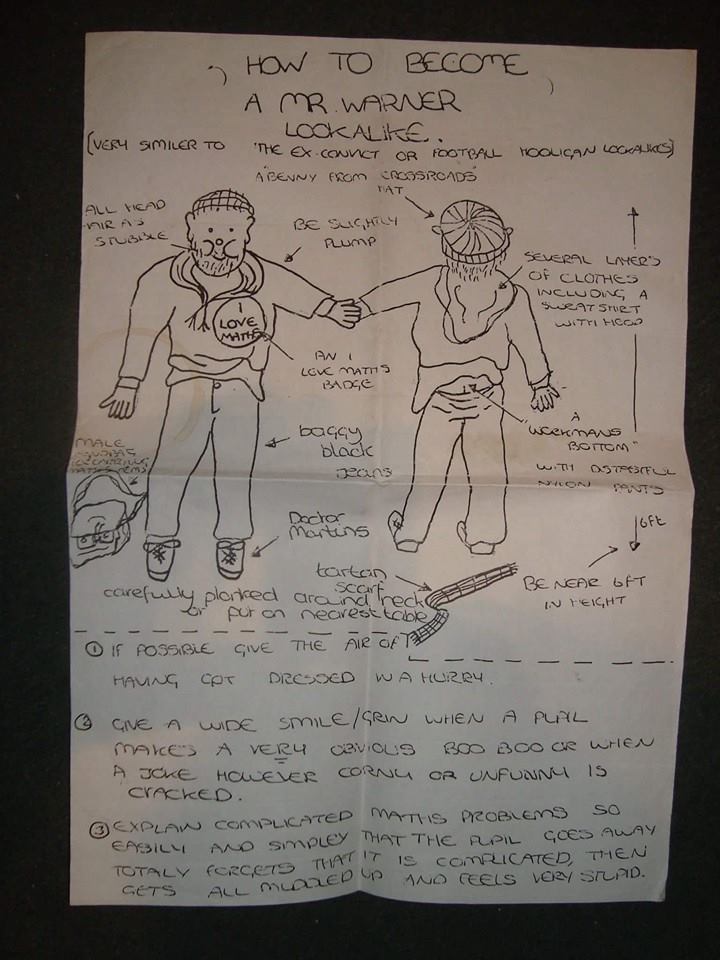 HOW TO BECOME
A MR. WARNER
LOOKALIKE.
(VERY SIMILER TO 'THE EX-CONVICT OR FOOTBALL HOOLIGAN LOOKALIKES)
A 'BENNY FROM CROSSROADS'
HAT
ALL HEAD
HAIR AS
STUBBLE
BE SLIGHTLY
PLUMP
SEVERAL LAYER'S
OF CLOTHES
INCLUDING A
SWEATSHIRT
WITH HOOD
I
LOVE
MATHS
AN I
LOVE MATHS
BADGE
A
WORKMANS
BOTTOM"
WITH DISTASTEFUL
NYLON PANTS
baggy
black
jeans
MALE
HANDBAG
FOR CARRYING
MATHS ITEMS
Doctor
Martins
6ft
BE NEAR 6FT
IN HEIGHT
tartan
scarf
carefully planked around neck
or put on nearest table
① IF POSSIBLE GIVE THE AIR OF
HAVING GOT DRESSED IN A HURRY.
② GIVE A WIDE SMILE/GRIN WHEN A PUPIL
MAKES A VERY OBVIOUS BOO BOO OR WHEN
A JOKE HOWEVER CORNY OR UNFUNNY IS
CRACKED.
③ EXPLAIN COMPLICATED MATHS PROBLEMS SO
EASILY AND SIMPLEY THAT THE PUPIL GOES AWAY
TOTALY FORGETS THAT IT IS COMPLICATED, THEN
GETS ALL MUDDLED UP AND FEELS VERY STUPID.